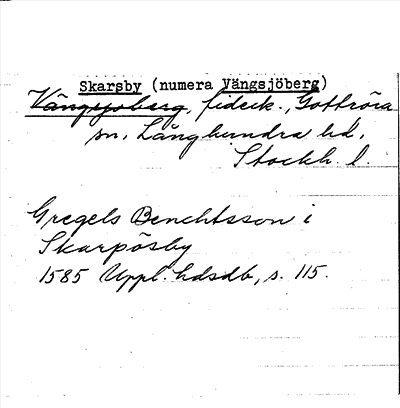 Skarsby (numera Vängsjöberg)
Vängsjöberg, fideik., Gottröra
sn. Långhundra hd.
Stockh. l.
Gregels Benchtsson i
Skarpösby
1585 Uppl. hdsdb, s. 115.